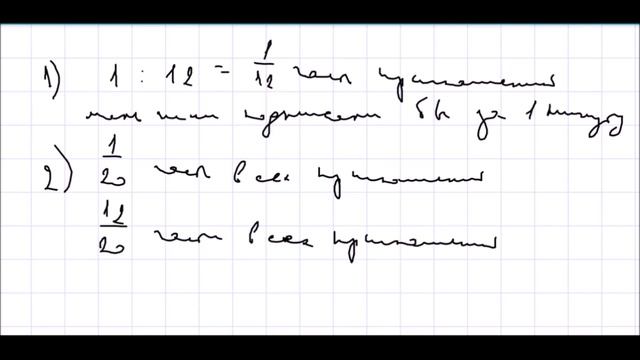 1) 1 : 12 = 1/12 часть приглашений
подписали бы за 1 минуту
2) 1/20 часть всех приглашений
12/20 части всех приглашений